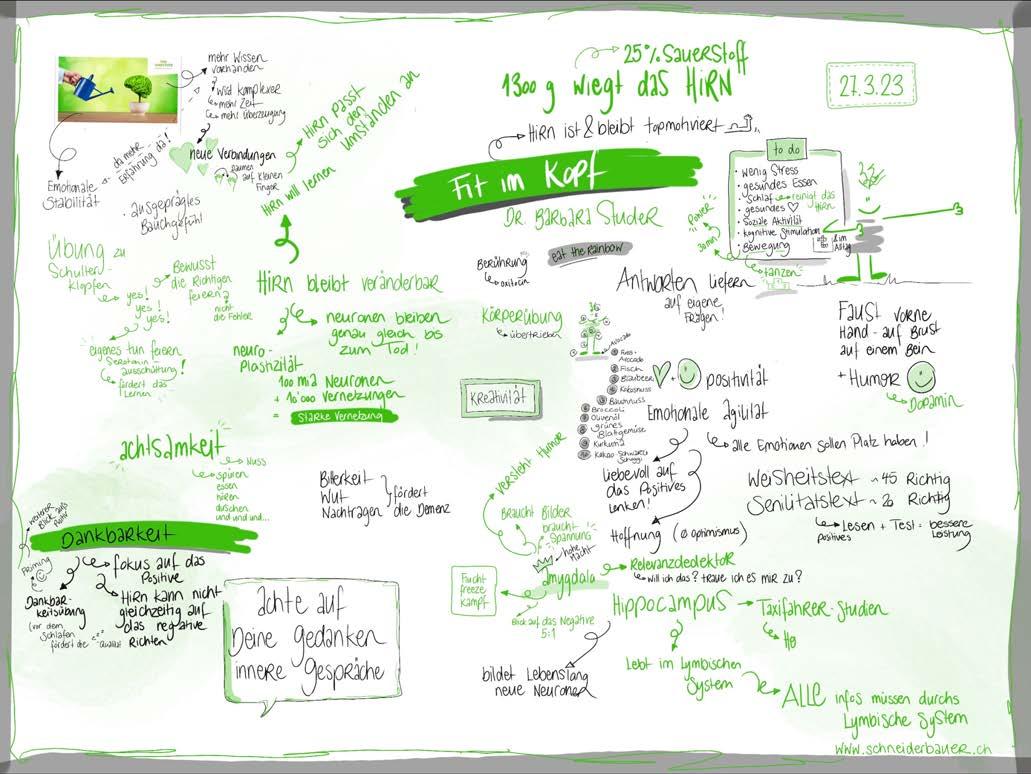 25% Sauerstoff
1300 g wiegt das HIRN
27.3.23
HIRN ist & bleibt topmotiviert
Fit im Kopf
Dr. Barbara Studer
to do
• wenig Stress
• gesundes Essen
• Schlaf reinigt das HIRN
• gesundes
• Soziale Aktivität
• kognitive Stimulation
• Bewegung
& im Alltag
30min
tanzen
mehr Wissen
vorhanden
wird komplexer
mehr Zeit
mehr überzeugung
da mehr
Erfahrung da!
neue Verbindungen
Daumen
auf kleinen
Finger
Emotionale
Stabilität
• ausgeprägles
Bauchgefühl
HIRN passt
sich den
Umständen an
HIRN will lernen
Übung zu
Schulter-
klopfen
yes!
yes!
yes!
Bewusst
die Richtigen
feiern
nicht
die Fehler
eigenes tun feiern
Serotonin
ausschüttung!
fördert das
Lernen
HIRN bleibt veränderbar
neuronen bleiben
genau gleich bis
zum Tod!
neuro-
Plastizität
100 mia Neuronen
+ 10'000 Vernetzungen
= Starke Vernetzung
Berührung
oxitocin
eat the rainbow
Körperübung
übertrieben
Antworten liefern
auf eigene
Fragen!
Faust vorne
Hand-auf Brust
auf einem Bein
+ Humor
Dopamin
Kreativität
Avocado
Fisch
Blaubeer
Kokosnuss
Baumnuss
Broccoli
Olivenöl
grünes
Blattgemüse
Kurkuma
Kakao-Schwarzi
Schoggi
+ positivität
Emotionale agilität
alle Emotionen sollen Platz haben!
liebevoll auf
das Positives
lenken!
Hoffnung (Ø optimismus)
Weisheitstext ~45 Richtig
Senilitätstext ~26 Richtig
Lesen + Test = bessere
positives Leistung
achtsamkeit
Nuss
spüren
essen
hören
duschen
und und und...
Bitterkeit
Wut
Nachtragen
fördert
die Demenz
Dankbarkeit
Priming
fokus auf das
Positive
HIRN kann nicht
gleichzeitig auf
das negative
Richten
Dankbar-
keitsübung
(vor dem
Schlafen
fördert die Qualität
achte auf
Deine gedanken
innere Gespräche
versteht Humor
Braucht Bilder
braucht
Spannung
hohe
Macht
Amygdala
Flucht
freeze
Kampf
Blick auf das Negative
5:1
Relevanzdedektor
will ich das? traue ich es mir zu?
Hippocampus
Taxifahrer-Studien
bildet Lebenslang
neue Neuronen
Lebt im Lymbischen
System
ALLE infos müssen durchs
Lymbische System
www.schneiderbauer.ch